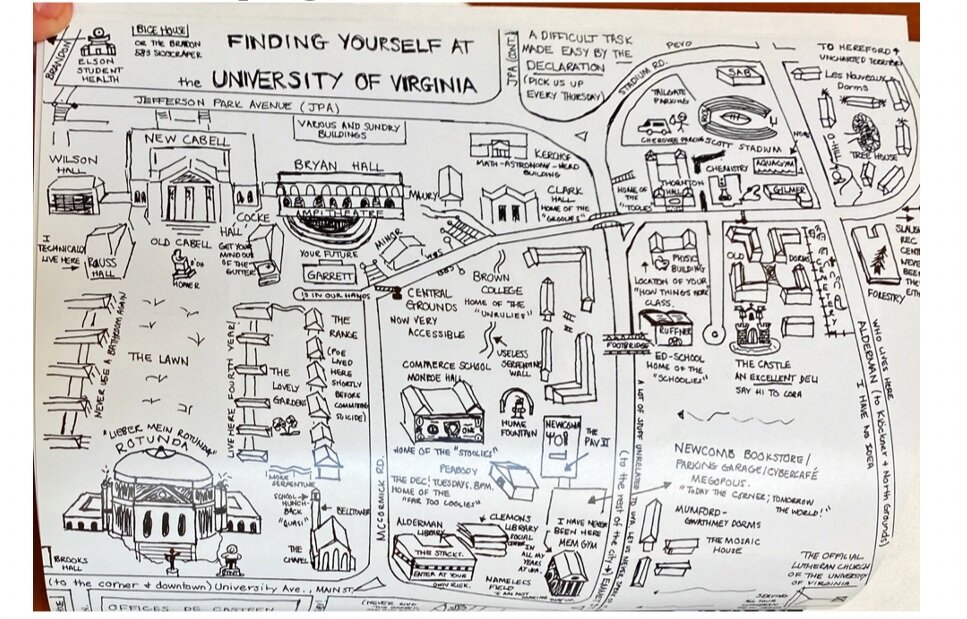 BRANDON
ELSON
STUDENT
HEALTH
BICE HOUSE
OR THE BRANDON
FINDING YOURSELF AT
the UNIVERSITY OF VIRGINIA
JPA (CONT.)
A DIFFICULT TASK
MADE EASY BY THE
DECLARATION
(PICK US UP
EVERY THURSDAY)
PEVO
STADIUM RD.
TAILGATE
PARKING
SAB
SCOTT STADIUM
TO HEREFORD
UNCHARTED TERRITORY
LES NOUVEAUX
DORMS
O-HILL
TREE HOUSE
JEFFERSON PARK AVENUE (JPA)
VARIOUS AND SUNDRY
BUILDINGS
NEW CABELL
WILSON
HALL
BRYAN HALL
AMPITHEATRE
KERCHOF
MATH-ASTRONOMY-NERD
BUILDING
MAURY
CLARK
HALL
HOME OF THE
"GROOLIES"
HOME OF
THE
"TOOLIES"
THORNTON
HALL
CHEMISTRY
AQUAGYM
GILMER
I
TECHNICALLY
LIVE HERE
ROUSS
HALL
OLD CABELL
HOMER
D'OH
COCKE
HALL
GET YOUR
MIND OUT
OF THE
GUTTER
YOUR FUTURE
GARRETT
IS IN OUR HANDS
MINOR
BROWN
COLLEGE
HOME OF THE
"UNRULIES"
PHYSICS
BUILDING
LOCATION OF YOUR
"HOW THINGS WORK"
CLASS.
OLD
DORMS
FORESTRY
NEVER USE A BATHROOM AGAIN
THE LAWN
LIVE HERE FOURTH YEAR!
THE
LOVELY
GARDENS
THE
RANGE
(POE
LIVED
HERE
SHORTLY
BEFORE
COMMITING
SUICIDE)
CENTRAL
GROUNDS
NOW VERY
ACCESSIBLE
USELESS
SERPENTINE
WALL
COMMERCE SCHOOL
MONROE HALL
HOME OF THE "STOOLIES"
HUME
FOUNTAIN
NEWCOMB
THE
PAV
FOOTBRIDGE
RUFFNER
ED-SCHOOL
HOME OF THE
"SCHOOLIES"
THE CASTLE
AN EXCELLENT DELI
SAY HI TO CORA
WHO LIVES HERE
I HAVE NO IDEA
ALDERMAN (to Klöckner & North Grounds)
"LIEBER MEIN ROTUNDA"
ROTUNDA
MORE
SERPENTINE
SCHOOL
HUNCH-
BACK
"QUASI"
BELLTOWER
THE
CHAPEL
MCCORMICK RD.
PEABODY
THE DEC! TUESDAYS. 8PM.
HOME OF THE
"FAR TOO COOLIES"
ALDERMAN
LIBRARY
THE STACKS.
ENTER AT YOUR
OWN RISK.
CLEMONS
LIBRARY
SOCIAL
CENTER
I HAVE NEVER
BEEN HERE
MEM GYM
IN ALL
MY
YEARS
AT UVA.
NAMELESS
FIELD
I AM NOT
MAKING THIS UP
NEWCOMB BOOKSTORE/
PARKING GARAGE/CYBERCAFÉ
MEGOPOLIS.
"TODAY THE CORNER; TOMORROW
THE WORLD!"
MUMFORD-
GWATHMEY DORMS
THE MOSAIC
HOUSE
THE OFFICIAL
LUTHERAN CHURCH
OF THE UNIVERSITY
OF VIRGINIA
BROOKS
HALL
(to the corner & downtown) University Ave., MAIN ST.
SERVING